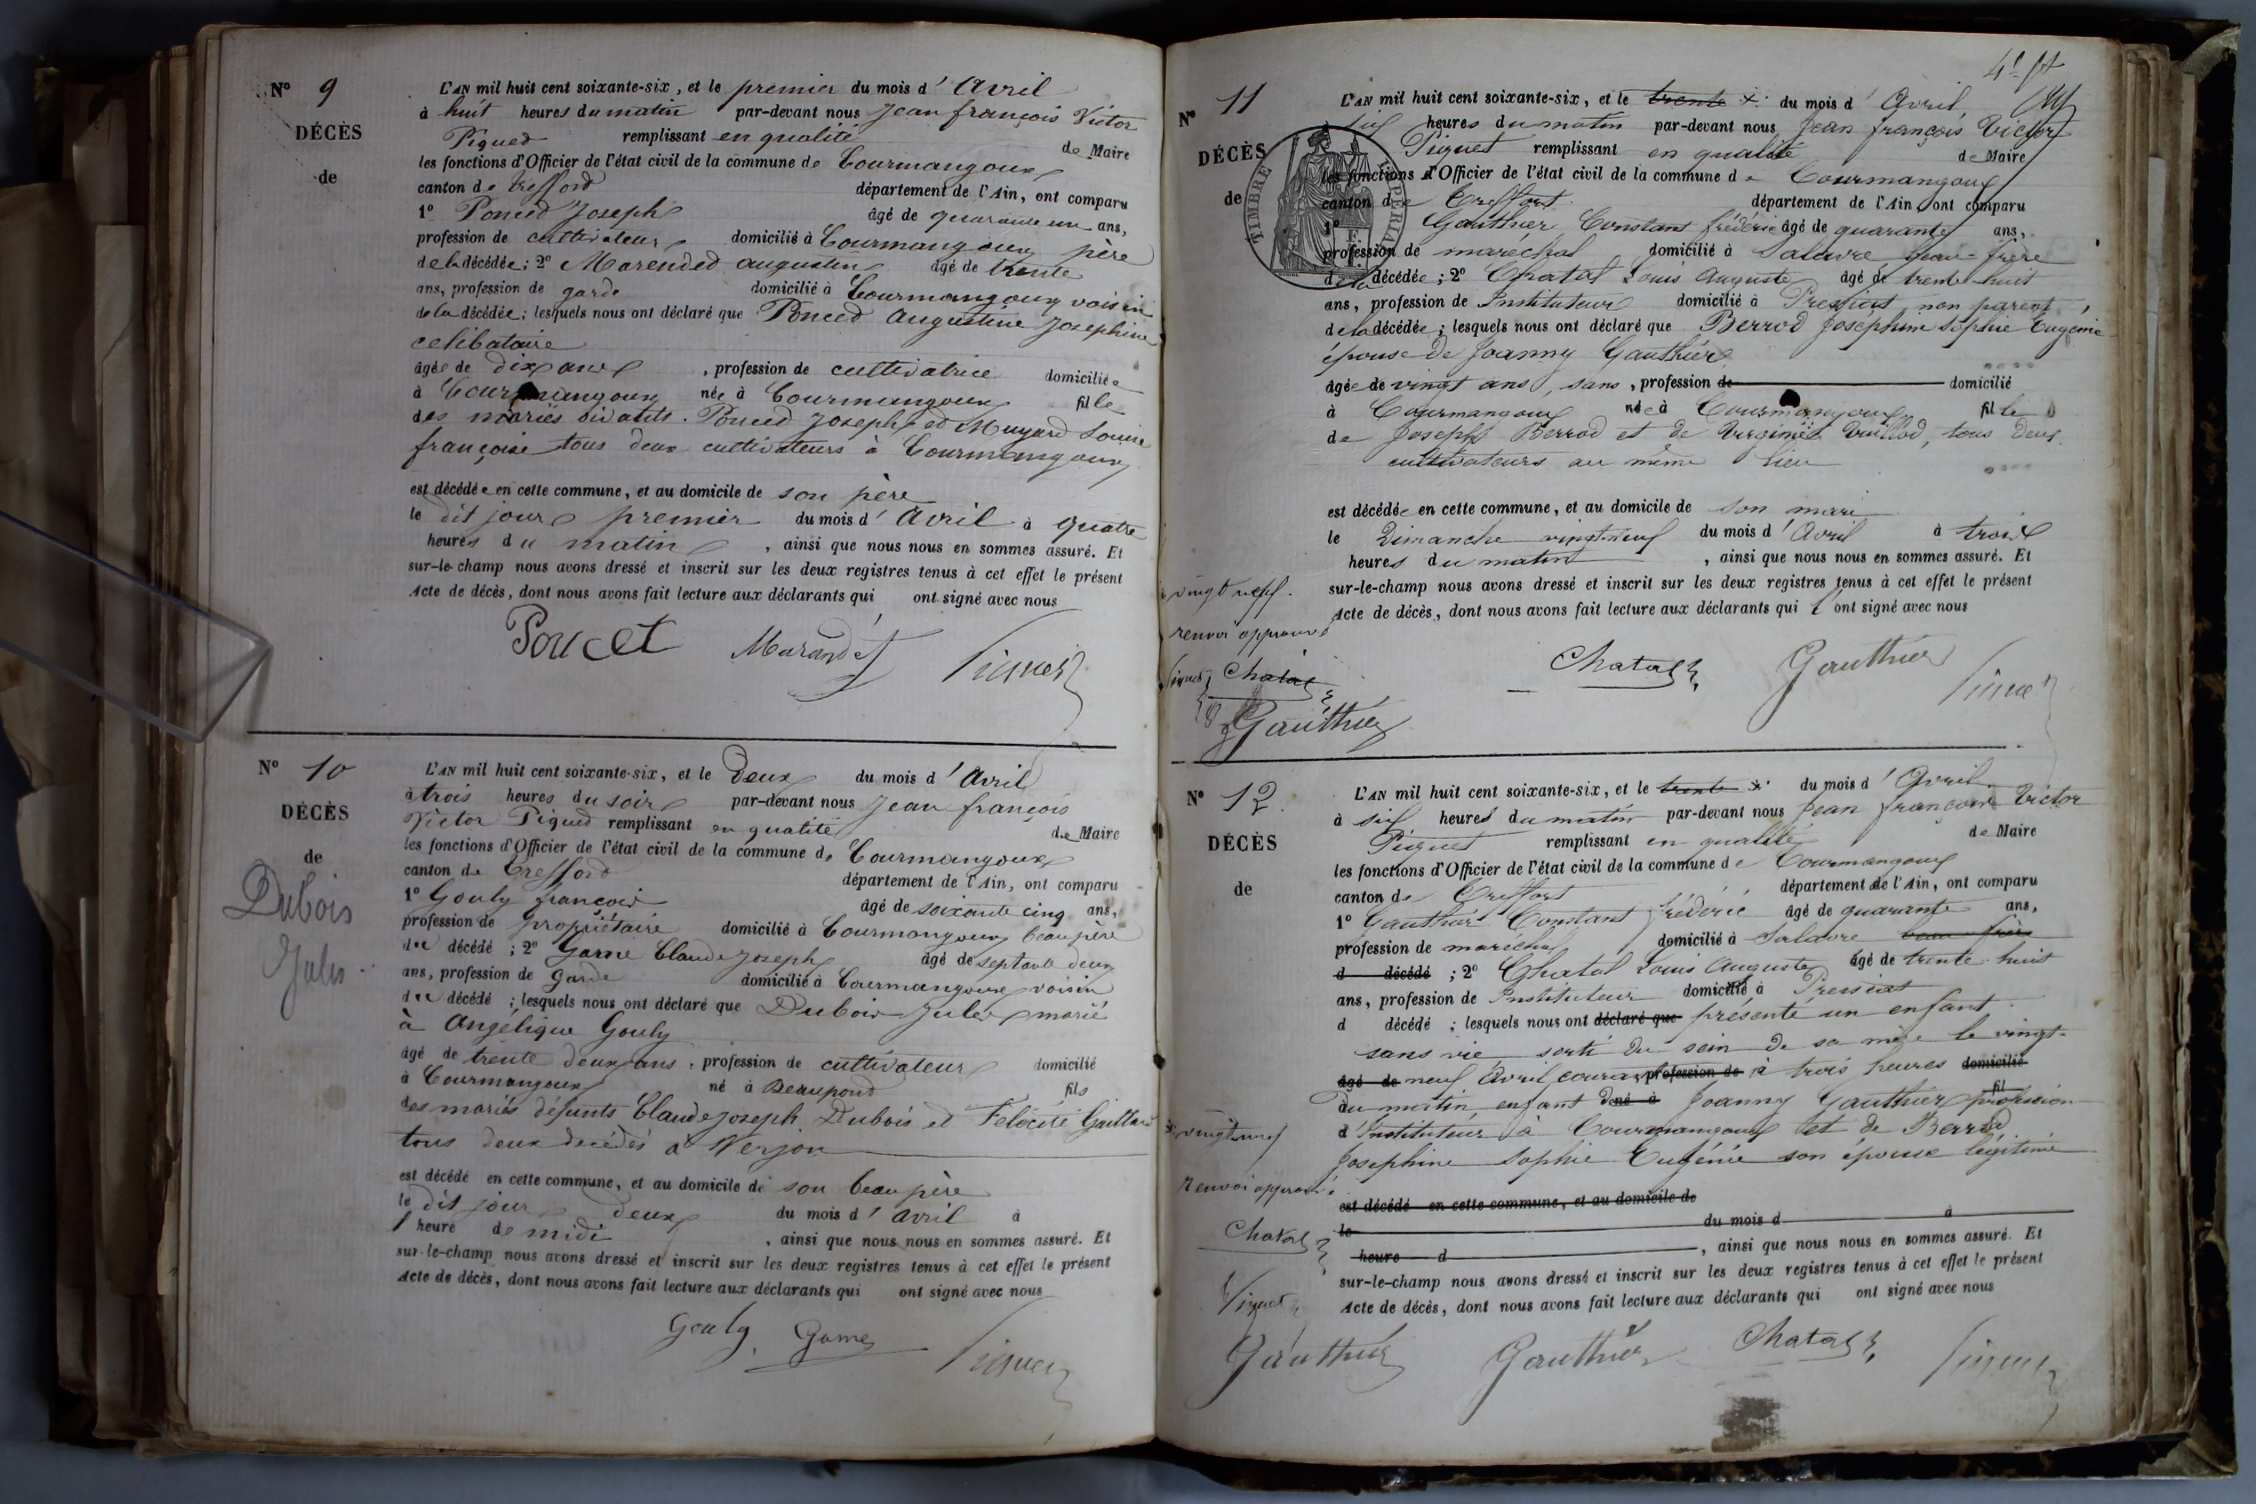 N° 9
DÉCÈS
de
L'AN mil huit cent soixante-six, et le premier du mois d'Avril
à huit heures du matin par-devant nous Jean françois Victor
Piqued remplissant en qualité de Maire
les fonctions d'Officier de l'état civil de la commune de Courmangoux
canton de trefford département de l'Ain, ont comparu
1° Ponced Joseph âgé de quarante un ans,
profession de cultivateur domicilié à Courmangoux père
de la décédée; 2° Marended augustin âgé de trente
ans, profession de garde domicilié à Courmangoux voisin
de la décédée; lesquels nous ont déclaré que Ponced Augustine Josephine
celibataire
âgée de dix ans, profession de cultivatrice domiciliée
à Courmangoux née à Courmangoux fille
des mariés vivants. Ponced Joseph et Muyard Louise
françoise tous deux cultivateurs à Courmangoux
est décédée en cette commune, et au domicile de son père
le dit jour premier du mois d'Avril à quatre
heures du matin, ainsi que nous nous en sommes assuré. Et
sur-le-champ nous avons dressé et inscrit sur les deux registres tenus à cet effet le présent
Acte de décès, dont nous avons fait lecture aux déclarants qui ont signé avec nous
Poucet Marandet Piquet
N° 10
DÉCÈS
de
Dubois
Jules
L'AN mil huit cent soixante-six, et le Deux du mois d'Avril
à trois heures du soir par-devant nous Jean françois
Victor Piqued remplissant en qualité de Maire
les fonctions d'Officier de l'état civil de la commune de Courmangoux
canton de Trefford département de l'Ain, ont comparu
1° Gouly françois âgé de soixante cinq ans,
profession de propriétaire domicilié à Courmangoux beau père
du décédé; 2° Game Claude Joseph âgé de septante deux
ans, profession de Garde domicilié à Courmangoux voisin
du décédé; lesquels nous ont déclaré que Dubois Jules marié
à Angélique Gouly
âgé de trente deux ans, profession de cultivateur domicilié
à Courmangoux né à Beaupond fils
des mariés défunts Claude Joseph Dubois et Felécité Gaillard
tous deux decédés à Verjon
est décédé en cette commune, et au domicile de son beau père
le dit jour deux du mois d'avril à
1 heure de midi, ainsi que nous nous en sommes assuré. Et
sur-le-champ nous avons dressé et inscrit sur les deux registres tenus à cet effet le présent
Acte de décès, dont nous avons fait lecture aux déclarants qui ont signé avec nous
Gouly Game Piquet
N° 11
DÉCÈS
de
TIMBRE IMPERIAL
L'AN mil huit cent soixante-six, et le trente du mois d'Avril
six heures du matin par-devant nous Jean françois Victor
Piquet remplissant en qualité de Maire
les fonctions d'Officier de l'état civil de la commune de Courmangoux
canton de Treffort département de l'Ain, ont comparu
1° Gauthier Constant frédéric âgé de quarante ans,
profession de maréchal domicilié à Salavre beau-frère
de la décédée; 2° Chatal Louis Auguste âgé de trente-huit
ans, profession de Instituteur domicilié à Pressiat, non parent,
de la décédée; lesquels nous ont déclaré que Berrod Joséphine Sophie Eugénie
épouse de Joanny Gauthier
âgée de vingt ans, sans, profession de domicilié
à Courmangoux née à Courmangoux fille
de Joseph Berrod et de Virginie Vuillod, tous deux
cultivateurs au même lieu
est décédée en cette commune, et au domicile de son mari
le Dimanche vingt-neuf du mois d'Avril à trois
heures du matin, ainsi que nous nous en sommes assuré. Et
sur-le-champ nous avons dressé et inscrit sur les deux registres tenus à cet effet le présent
Acte de décès, dont nous avons fait lecture aux déclarants qui ont signé avec nous
vingt neuf.
renvoi approuvé
Piquet Chatal
Gauthier
Chatal Gauthier Piquet
N° 12
DÉCÈS
de
L'AN mil huit cent soixante-six, et le trente du mois d'Avril
à six heures du matin par-devant nous Jean françois Victor
Piquet remplissant en qualité de Maire
les fonctions d'Officier de l'état civil de la commune de Courmangoux
canton de Treffort département de l'Ain, ont comparu
1° Gauthier Constant frédéric âgé de quarante ans,
profession de maréchal domicilié à Salavre beau-frère
d décédé; 2° Chatal Louis Auguste âgé de trente-huit
ans, profession de Instituteur domicilié à Pressiat
d décédé; lesquels nous ont déclaré que présenté un enfant
sans vie sorti du sein de sa mère le vingt-
âgé de neuf Avril courant, profession de à trois heures domicilié
du matin, enfant de né à Joanny Gauthier fil profession
d'Instituteur à Courmangoux et de Berrod
Josephine Sophie Eugénie son épouse légitime
est décédé en cette commune, et au domicile de
le du mois d à
heure d, ainsi que nous nous en sommes assuré. Et
sur-le-champ nous avons dressé et inscrit sur les deux registres tenus à cet effet le présent
Acte de décès, dont nous avons fait lecture aux déclarants qui ont signé avec nous
vingt neuf
renvoi approuvé
Chatal
Piquet
Gauthier Gauthier Chatal Piquet